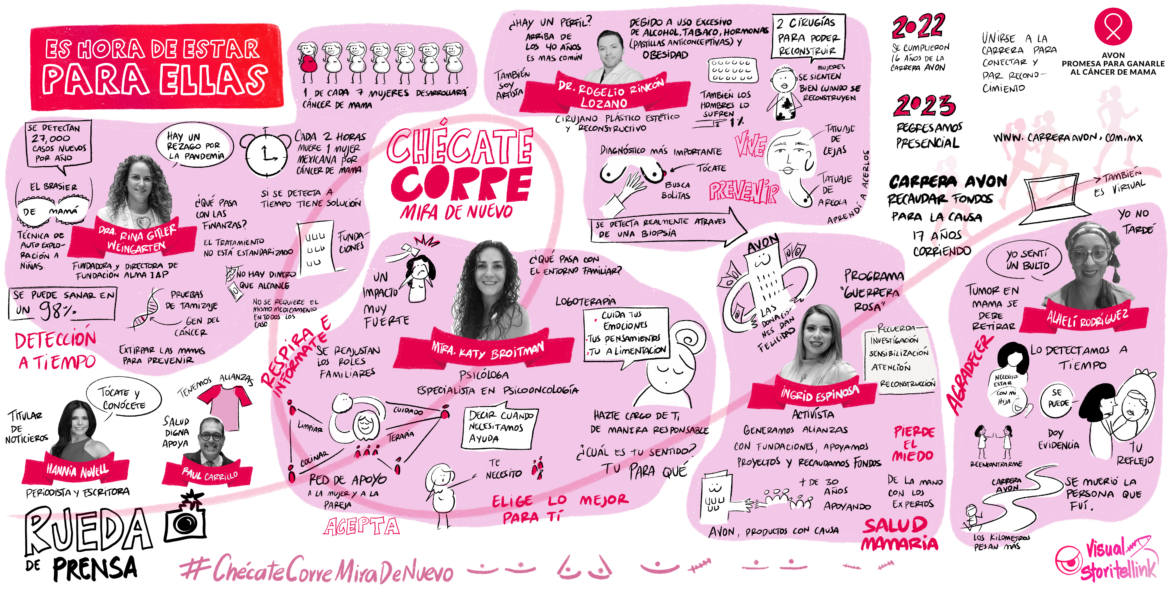 ES HORA DE ESTAR
PARA ELLAS
1 DE CADA 7 MUJERES DESARROLLARÁ
CÁNCER DE MAMA
SE DETECTAN
27,000
CASOS NUEVOS
POR AÑO
HAY UN
REZAGO POR
LA PANDEMIA
CADA 2 HORAS
MUERE 1 MUJER
MEXICANA POR
CÁNCER DE MAMA
EL BRASIER
DE MAMÁ
TÉCNICA DE
AUTO EXPLO-
RACIÓN A
NIÑAS.
DRA. RINA GITLER
WEINGARTEN
FUNDADORA Y DIRECTORA DE
FUNDACIÓN ALMA IAP
¿QUÉ PASA
CON LAS
FINANZAS?
EL TRATAMIENTO
NO ESTÁ ESTANDARIZADO
SI SE DETECTA A
TIEMPO TIENE SOLUCIÓN
FUNDA-
CIONES
NO HAY DINERO
QUE ALCANCE
NO SE REQUIERE EL
MISMO MEDICAMENTO
EN TODOS LOS
CASO
SE PUEDE SANAR EN
UN 98%.
DETECCIÓN
A TIEMPO
PRUEBAS
DE TAMIZAJE
GEN DEL
CÁNCER
EXTIRPAR LAS MAMAS
PARA PREVENIR
TITULAR
DE
NOTICIEROS
TÓCATE Y
CONÓCETE
HANNIA NOVELL
PERIODISTA Y ESCRITORA
TENEMOS ALIANZAS
SALUD
DIGNA
APOYA
RAUL CARRILLO
RUEDA
DE PRENSA
CHÉCATE
CORRE
MIRA DE NUEVO
RESPIRA E
INFÓRMATE
UN
IMPACTO
MUY
FUERTE
MTRA. KATY BROITMAN
PSICÓLOGA
ESPECIALISTA EN PSICOONCOLOGÍA
¿QUÉ PASA CON
EL ENTORNO FAMILIAR?
LOGOTERAPIA
CUIDA TUS
EMOCIONES
TUS PENSAMIENTOS
TU ALIMENTACIÓN
SE REAJUSTAN
LOS ROLES
FAMILIARES
LIMPIAR
CUIDADO
TERAPIA
COCINAR
RED DE APOYO
A LA MUJER Y A LA
PAREJA
ACEPTA
DECIR CUANDO
NECESITAMOS
AYUDA
TE
NECESITO
HAZTE CARGO DE TI,
DE MANERA RESPONSABLE
¿CUÁL ES TU SENTIDO?
TU PARA QUÉ
ELIGE LO MEJOR
PARA TÍ
¿HAY UN PERFIL?
ARRIBA DE
LOS 40 AÑOS
ES MAS COMÚN
TAMBIÉN
SOY
ARTISTA
DR. ROGELIO RINCÓN
LOZANO
CIRUJANO PLÁSTICO ESTÉTICO
Y RECONSTRUCTIVO
DEBIDO A USO EXCESIVO
DE ALCOHOL, TABACO, HORMONAS
(PASTILLAS ANTICONCEPTIVAS) Y
OBESIDAD
TAMBIÉN LOS
HOMBRES LO
SUFREN
1%
2 CIRUGÍAS
PARA PODER
RECONSTRUIR
MUJERES
SE SIENTEN
BIEN CUANDO SE
RECONSTRUYEN
DIAGNÓSTICO MÁS IMPORTANTE
TÓCATE
BUSCA
BOLITAS
VIVE
PREVENIR
TATUAJE
DE
CEJAS
TATUAJE
DE
AREOLA
APRENDÍ A HACERLOS
SE DETECTA REALMENTE ATRAVES
DE UNA BIOPSIA
AVON
LAS
DONACIO-
NES DAN
FELICIDAD
PROGRAMA
"GUERRERA
ROSA"
RECUERDA:
INVESTIGACIÓN
SENSIBILIZACIÓN
ATENCIÓN
RECONSTRUCCIÓN
INGRID ESPINOSA
ACTIVISTA
GENERAMOS ALIANZAS
CON FUNDACIONES, APOYAMOS
PROYECTOS Y RECAUDAMOS FONDOS
PIERDE
EL
MIEDO
+ DE 30
AÑOS
APOYANDO
DE LA MANO
CON LOS
EXPERTOS
AVON, PRODUCTOS CON CAUSA
SALUD
MAMARIA
2022
SE CUMPLIERON
16 AÑOS DE LA
CARRERA AVON
2023
REGRESAMOS
PRESENCIAL
UNIRSE A LA
CARRERA PARA
CONECTAR Y
DAR RECONO-
CIMIENTO
AVON
PROMESA PARA GANARLE
AL CÁNCER DE MAMA
WWW.CARRERAAVON.COM.MX
CARRERA AVON
RECAUDAR FONDOS
PARA LA CAUSA
17 AÑOS
CORRIENDO
> TAMBIÉN
ES VIRTUAL
YO NO
TARDÉ
YO SENTÍ
UN BULTO
TUMOR EN
MAMA SE
DEBE
RETIRAR
ALHELÍ RODRÍGUEZ
AGRADECER
NECESITO
ESTAR
CON MI
HIJA
LO DETECTAMOS A
TIEMPO
SE
PUEDE
DOY
EVIDENCIA
TU
REFLEJO
REENCONTRARME
CARRERA
AVON
SE MURIÓ LA
PERSONA QUE
FUÍ.
LOS KILÓMETROS
PESAN MÁS
#ChécateCorreMiraDeNuevo
Visual
Storitellink